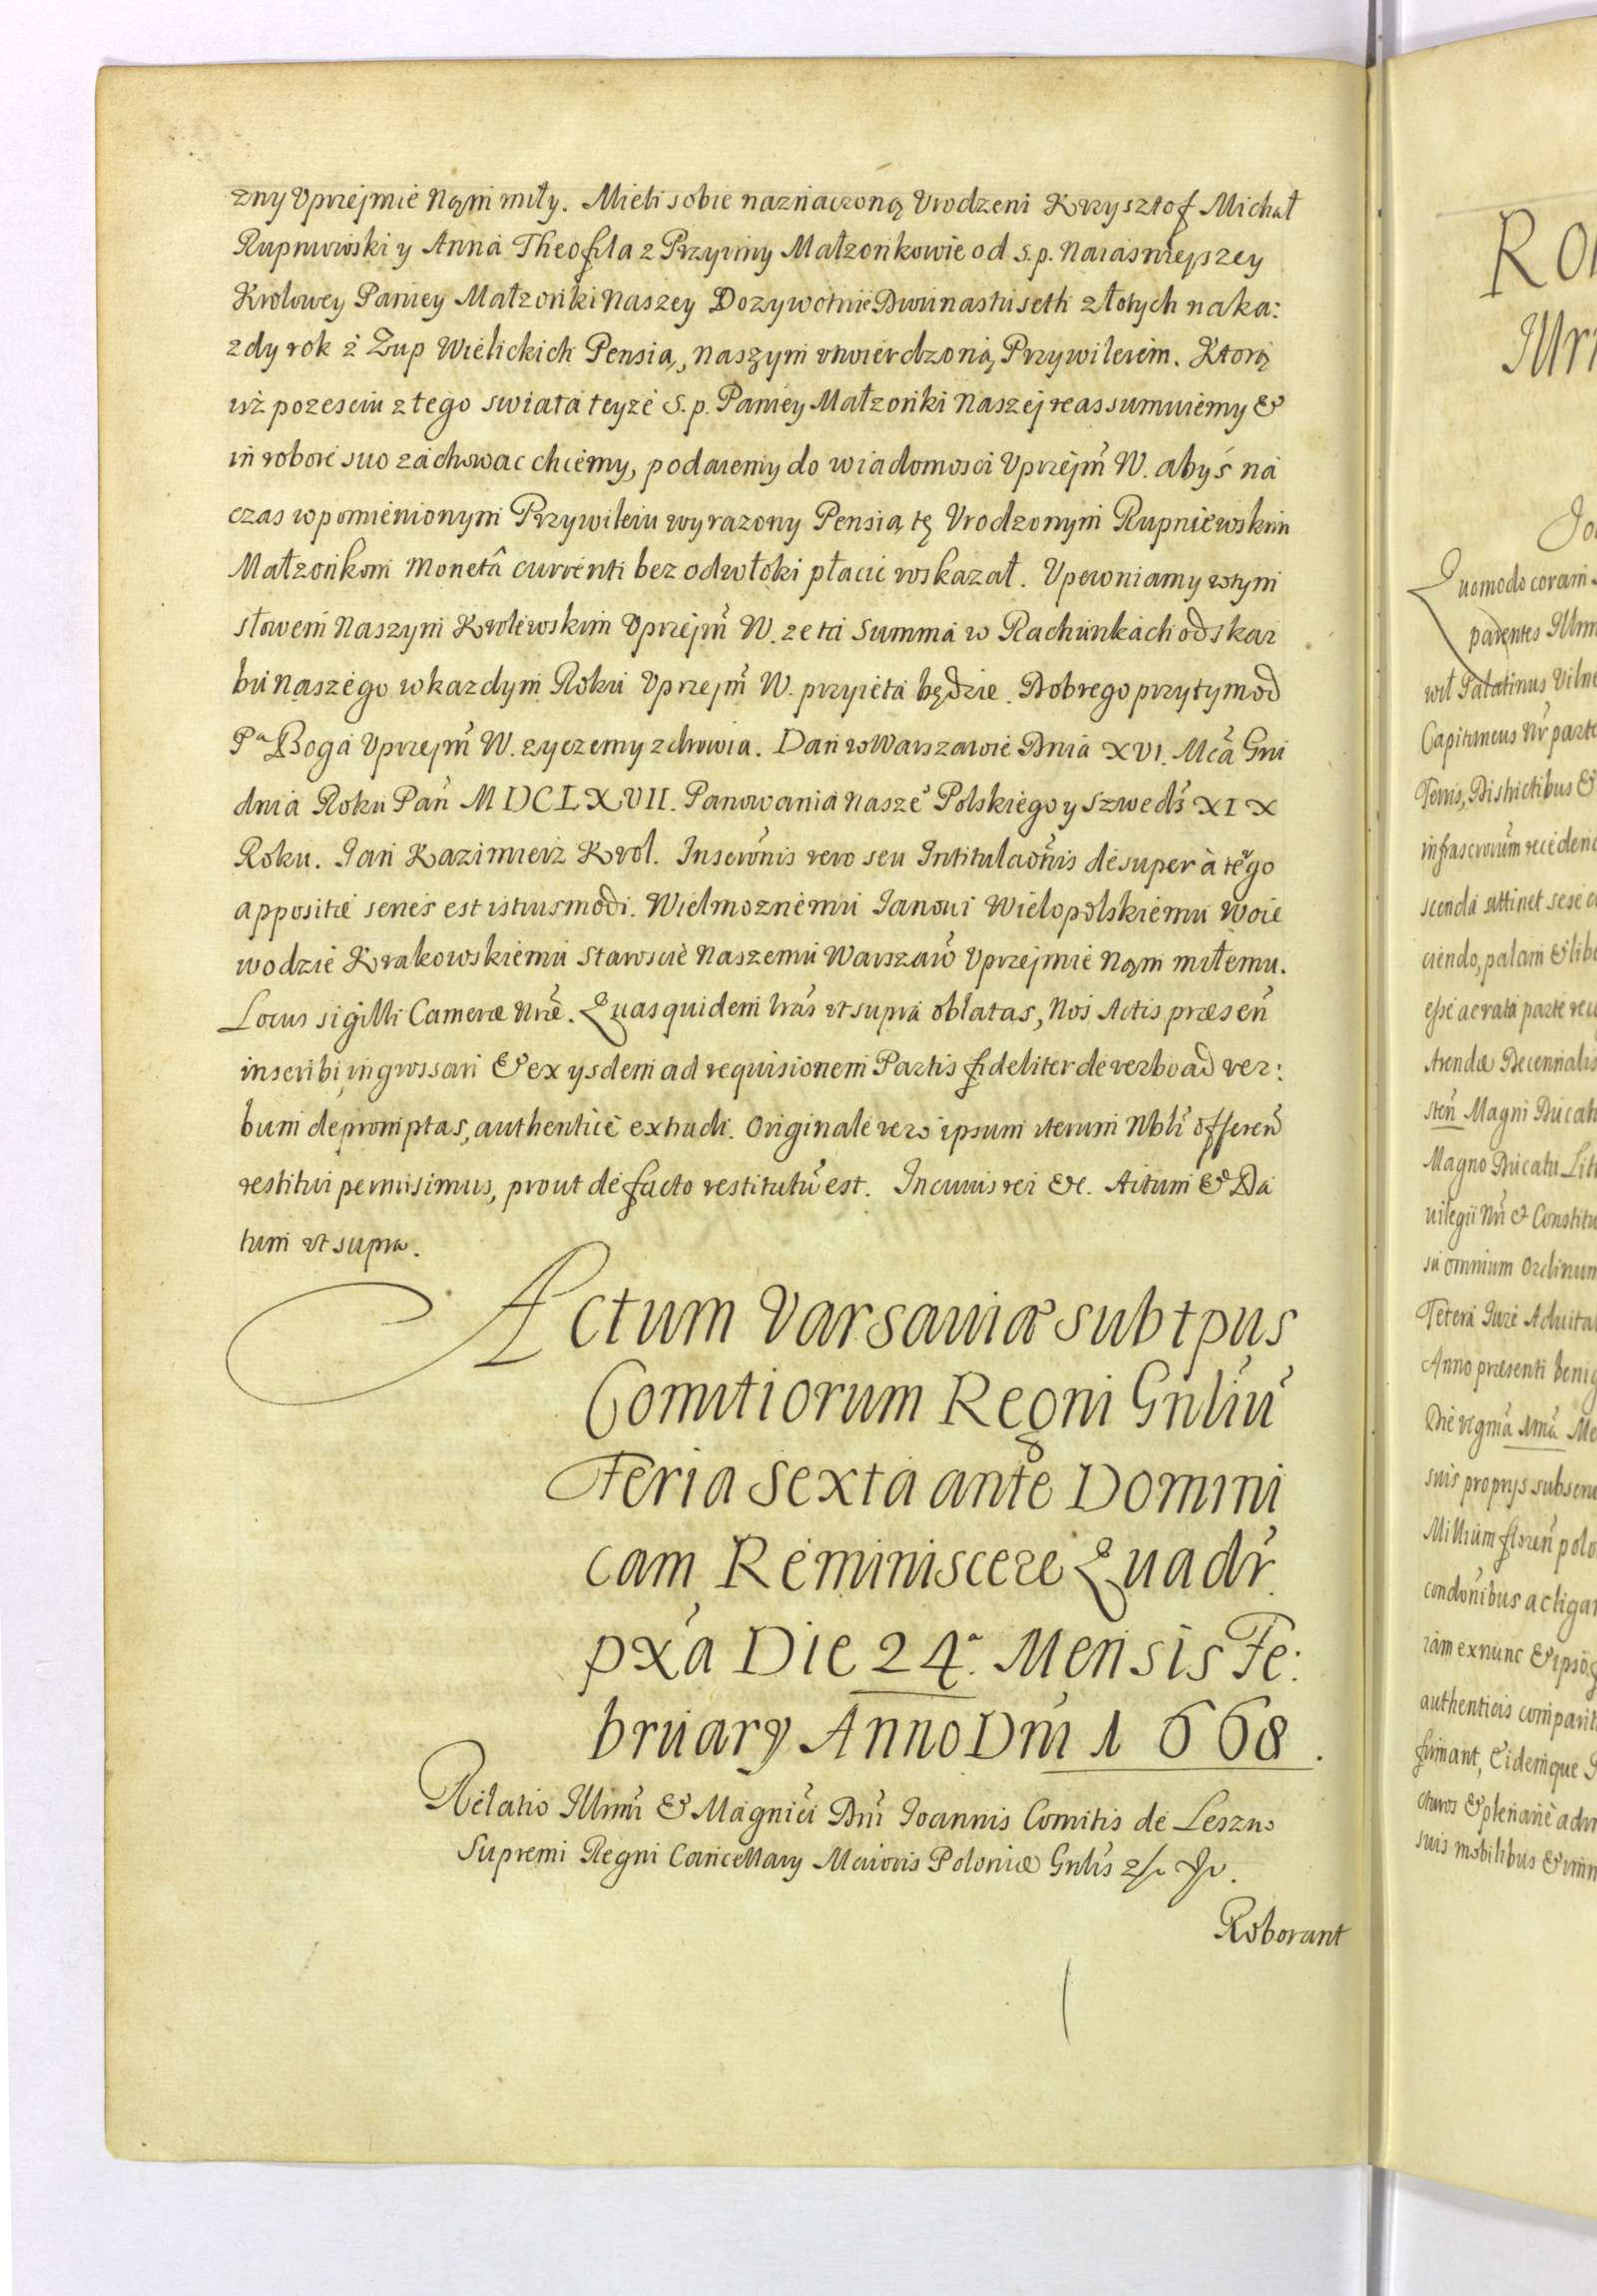 zny Vprzejmie Nąm miły. Mieli sobie naznaczoną Vrodzeni Krzysztof Michał
Rupniwski y Anna Theofila z Przyimy Małzonkowie od s.p. Naiasnieyszey
Krolowey Paniey Małzonki Naszey Dozywotnie Dwunastu seth złotych na ka:
zdy rok z Zup Wielickich Pensią, naszym vtwierdzoną Przywileiem. Ktorą
isz pozesciu z tego swiata teyze S.p. Paniey Małzonki Naszej reassumuiemy &
in robore suo zachowac chcemy, podaiemy do wiadomosci Vprzejm̃ W. abyś na
czas wpomienionym Przywileiu wyrazony Pensią tę Vrodzonym Rupniewskim
Małzonkom monetâ currenti bez odwłoki płacic wskazał. Vpewniamy wtym
słowem Naszym Krolewskim Vprzejm̃ W. ze ta Summa w Rachunkach od skar
bu naszego wkazdym Roku Vprzejm̃ W. przyięta będzie. Dobrego przytym od
Pa Boga Vprzejm̃ W. zyczemy zdrowia. Dan w Warszawie Dnia XVI. Mcã Gru
dnia Roku Pań MDCLXVII. Panowania nasze° Polskiego y Szwedz XIX
Roku. Jan Kazimierz Krol. Inscrõnis vero seu Intitulaõnis desuper à tergo
appositæ series est istiusmodi. Wielmoznemu Janowi Wielopolskiemu Woie
wodzie Krakowskiemu Staroscie Naszemu Warszaw̃ Vprzejmie Nąm miłemu.
Locus sigilli Cameræ Nræ̃. Quas quidem lrãs vt supra oblatas, Nos Actis præseñ
inscribi, ingrossari & ex ysdem ad requisionem Partis fideliter de verbo ad ver:
bum depromptas, authentice extradi. Originale vero ipsum iterum Nbli offereñ
restitui permisimus, prout de facto restitutũ est. In cuius rei &c. Actum & Da
tum vt supra.
Actum Varsaviæ sub tpus
Comitiorum Regni Gnliũ
Feria Sexta ante Domini
cam Reminiscere Quadr̃
pxã Die 24a. Mensis Fe:
bruary Anno Dñi 1668.
Relatio Illm̃i & Magnĩci Dñi Joannis Comitis de Leszno
Supremi Regni Cancellary Maioris Poloniæ Gnlĩs
Roborant
RO
Jo
Quomodo coram
parentes Illm
wił Palatinus Vilne
Capitaneus Nr̃ parte
Terris, Districtibus &
scenda attinet sese
ciendo, palam & libe
esse ac rata parte rec
Arendæ Decennalis
steñ Magni Ducat
Magno Ducatu Lit
uilegii Nri & Constitu
su omnium Ordinum
Anno præsenti benig
suis proprys subscri
Millium floreñ polo
iam exnunc & ipso
authenticis comparit
firmant, Eidemque
suis mobilibus & imm